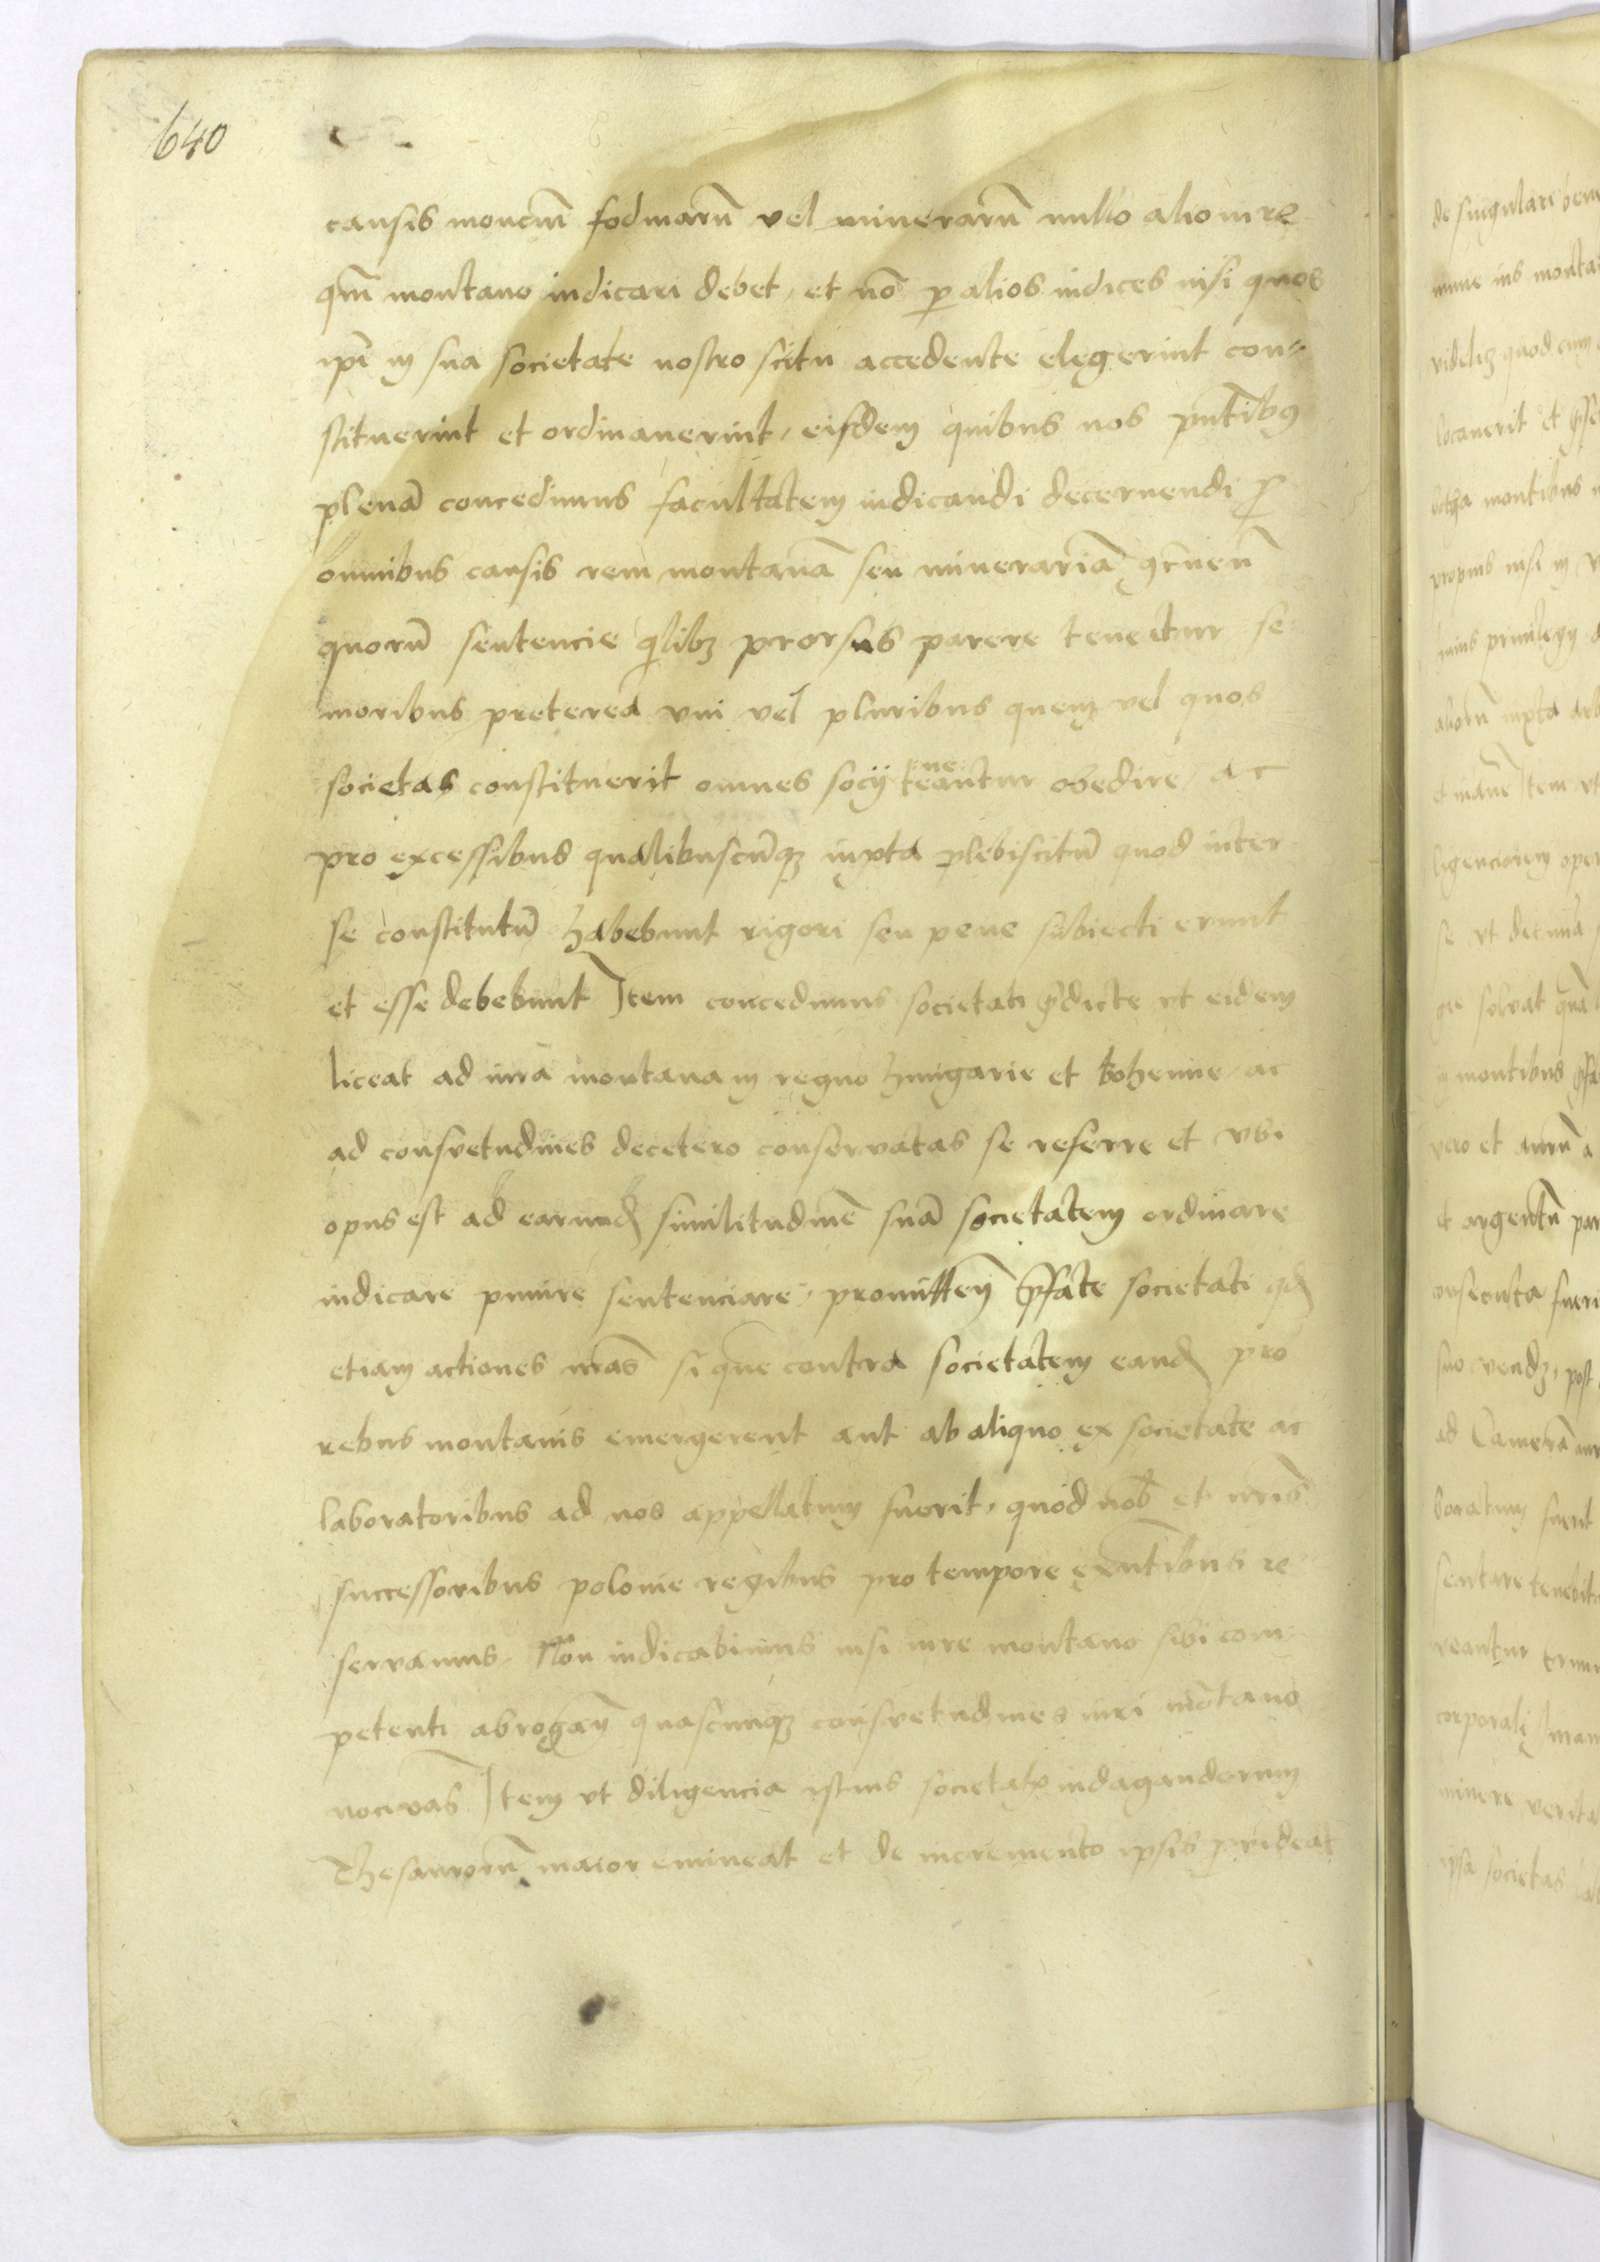 640
causis monciū fodinarū vel minerarū nullo alio iure
qm̄ montano iudicari debet, et nō p alios iudices nisi quos
ipī in sua societate nostro scitu accedente elegerint con-
stituerint et ordinauerint, eisdem quibus nos pn̄tibus
plenā concedimus facultatem iudicandi decernendi p
omnibus causis rem montanā seu minerariā
quorū sentencie qilibz prorsus parere tenectur se
nioribus preterea vni vel pluribus quem vel quos
societas constituerit omnes socij teneantur obedire, ac
pro excessibus qualibuscūqz iuxta plebiscitū quod inter
se constitutū habebunt rigori seu pene subiecti erunt
et esse debebunt Item concedimus societati p̄dicte vt eidem
liceat ad iura montana in regno hungarie et bohemie, ac
ad consvetudines decetero conservatas se referre et vbi
opus est ad earund similitudinē suā societatem ordinare
iudicare punire sentenciare, promitten p̄fate societati qd
etiam actiones nr̄as si que contra societatem eand pro
rebus montanis emergerent aut ab aliquo ex societate ac
laboratoribus ad nos appellatum fuerit, quod nob et nr̄is
successoribus polonie regibus pro tempore exn̄tibus re
servamus, Non iudicabimus nisi iure montano sibi com
petenti abrogan quascunqz consvetudines iuri mōtano
nocivas Item vt diligencia istius societatis indagandorum
Thesaurorū maior emineat et de incremento ipsis prideat
de singulari
locauerit et
montibus
privilegij
se vt decima
montibus
vero et aurū a
et argentū par
consecuta fueri
post
ad Camerā
fuerit
corporali
minere verita
ipsa societas